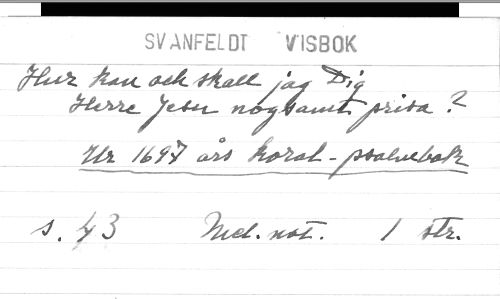 SVANFELDT VISBOK
Hur kan och skall jag Dig
Herre Jesu nogsamt prisa?
Ur 1697 års koral-psalmbok
s. 43 Mel. not. 1 str.